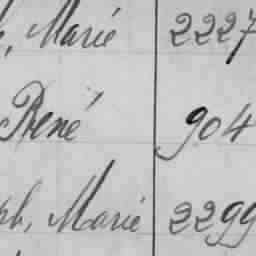 , Marié 2227
René 904
ph, Marie 2299